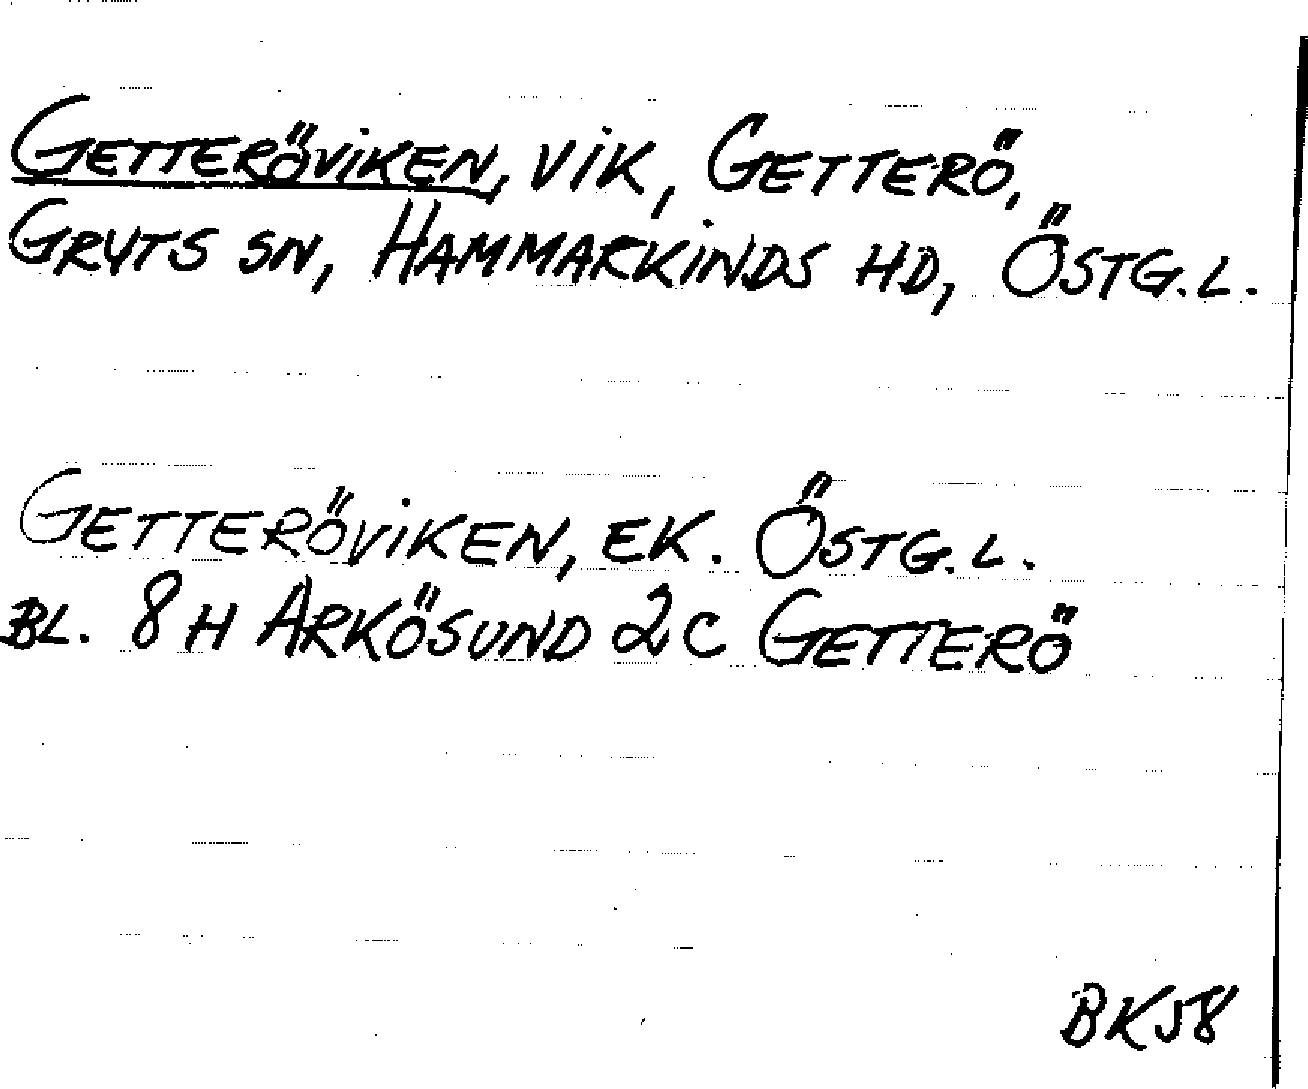 GETTERÖVIKEN, VIK, GETTERÖ,
GRYTS SN, HAMMARKINDS HD, ÖSTG.L.
GETTERÖVIKEN, EK. ÖSTG.L.
BL. 8H ARKÖSUND 2C GETTERÖ
BK58